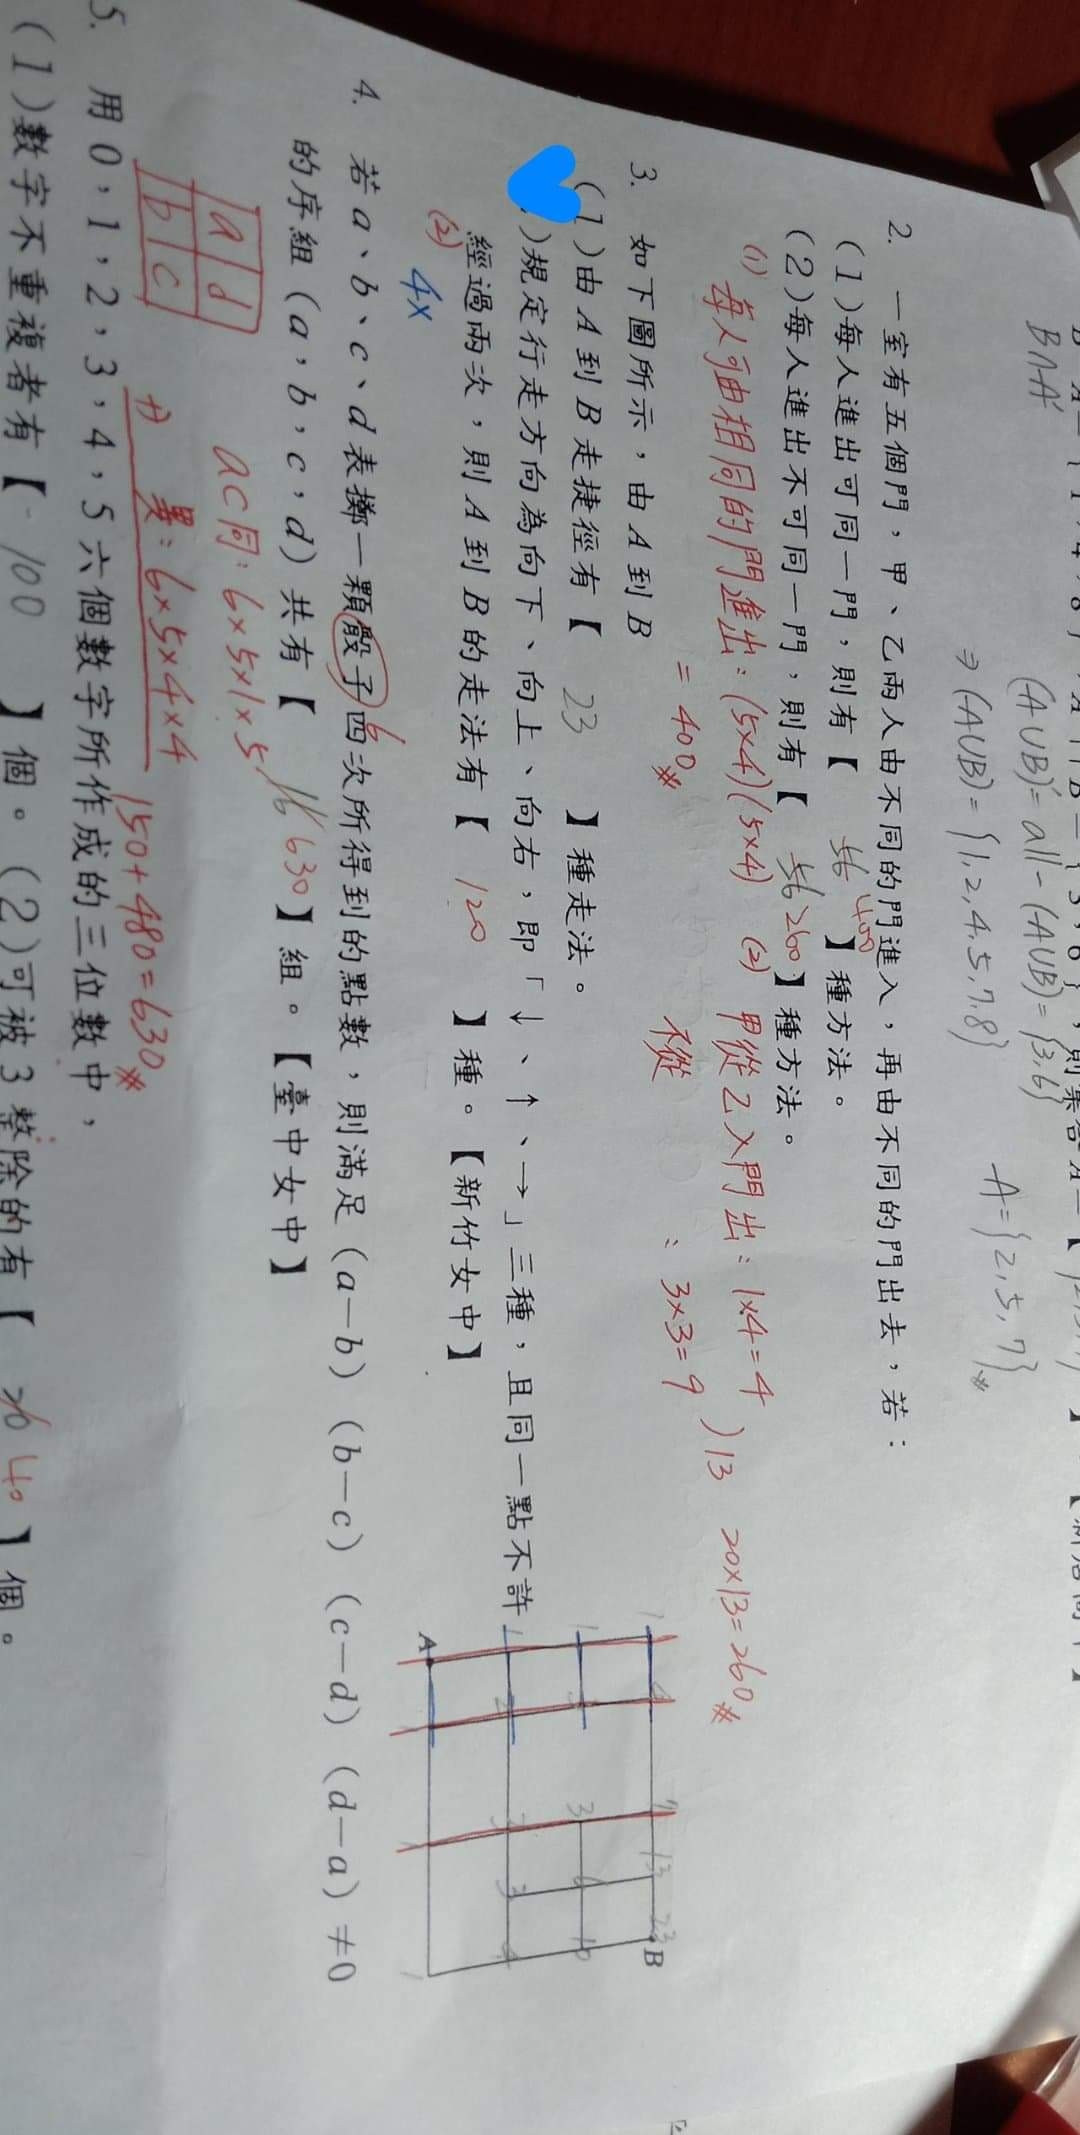 B∩A'
(A∪B)'=all-(A∪B)={3,6}
⇒(A∪B)={1,2,4,5,7,8}
A={2,5,7}※
2. 一室有五個門，甲、乙兩人由不同的門進入，再由不同的門出去，若：
(1)每人進出可同一門，則有【 56 400 】種方法。
(2)每人進出不可同一門，則有【 56 260 】種方法。
(1) 每人可由相同的門進出：(5×4)(5×4)
=400※
(2) 甲從乙入門出：1×4=4
不從 ：3×3=9
)13 20×13=260※
3. 如下圖所示，由A到B
(1)由A到B走捷徑有【 23 】種走法。
)規定行走方向為向下、向上、向右，即「↓、↑、→」三種，且同一點不許
經過兩次，則A到B的走法有【 120 】種。【新竹女中】
(2) 4×
A
B
1 4 7 13 23
1 3 3 6 10
1 2 3 3 4
1 1 1
4. 若a、b、c、d表擲一顆骰子四次所得到的點數，則滿足(a－b)(b－c)(c－d)(d－a)≠0
6
的序組(a，b，c，d)共有【 16 630 】組。【臺中女中】
a d
b c
ac同：6×5×1×5
+) 異：6×5×4×4
150+480=630※
5. 用0，1，2，3，4，5六個數字所作成的三位數中，
(1)數字不重複者有【 100 】個。(2)可被3整除的有【 26 40 】個。